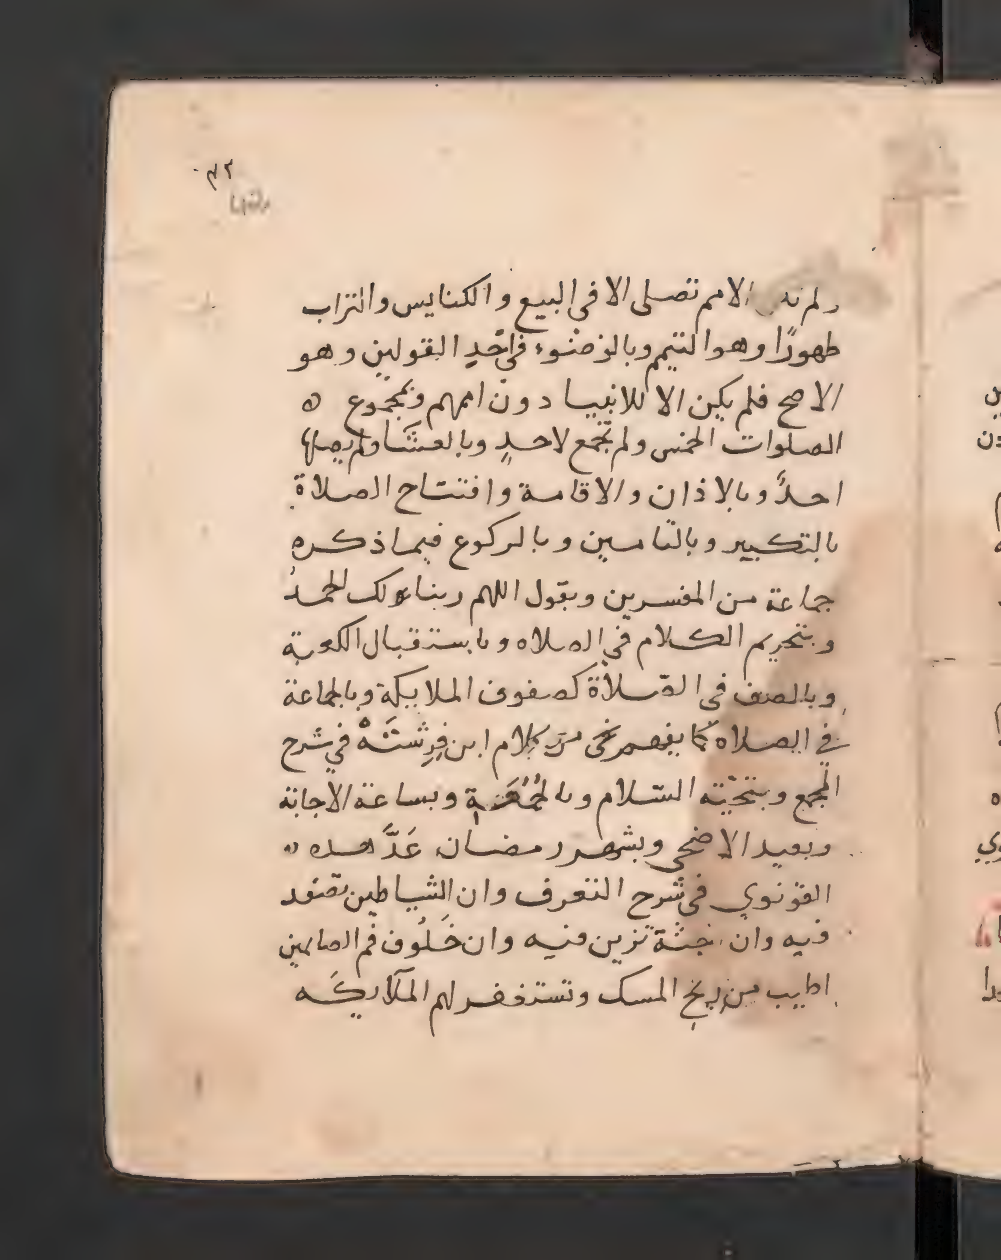 ولم تكن الامم تصلى الا فى البيع والكنايس والتراب
طهورًا وهو التيمم وبالوضوء فى احد القولين وهو
الاصح فلم يكن الا للانبيا دون اممهم وبمجموع
الصلوات الخمس ولم تجمع لاحدٍ وبالعشا ولم يصلها
احدٌ وبالاذان والاقامة وافتتاح الصلاة
بالتكبير وبالتامين وبالركوع فيما ذكره
جماعة من المفسرين وبقول اللهم ربنا ولك الحمدُ
وبتحريم الكلام فى الصلاه وباستقبال الكعبة
وبالصف فى الصلاة كصفوف الملايكة وبالجماعة
في الصلاه كما يفهم من كلام ابن فِرِشتَهْ في شرح
المجمع وبتحيّته السّلام وبالجُمُعَة وبساعة الاجابة
وبعيد الاضحى وبشهر رمضان عَدَّ هذه
القونوي فى شرح التعرف وان الشياطين تصفد
فيه وان الجنة تزين فيه وان خَلُوف فم الصايمين
اطيب من ريح المسك وتستغفر لهم الملآيكَه